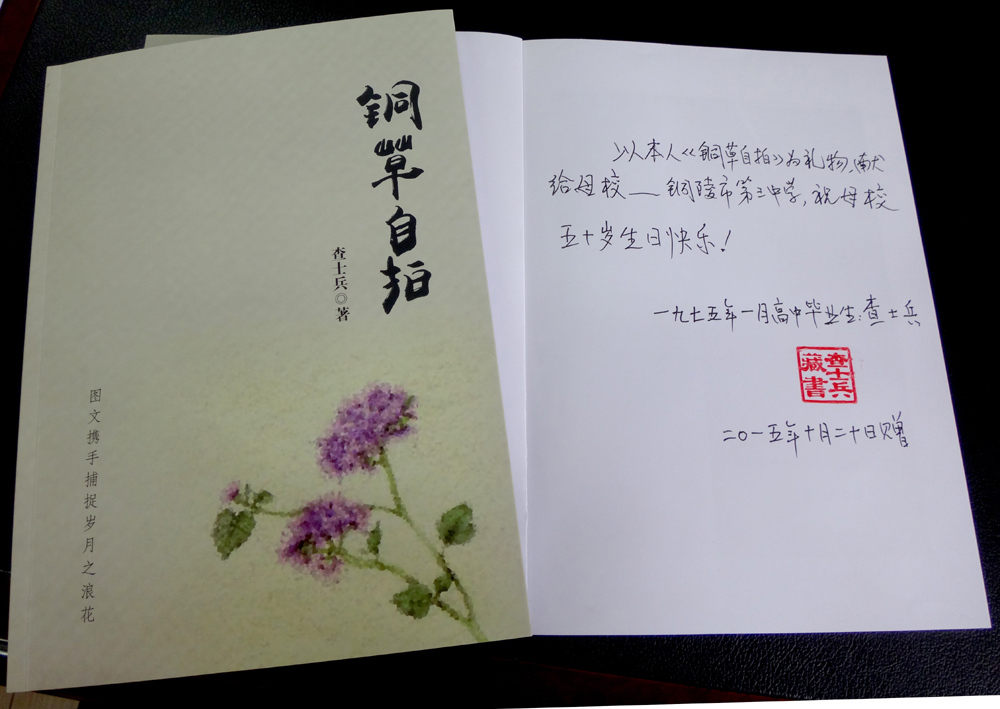 铜草自拍
查士兵◎著
图文携手捕捉岁月之浪花
以人本人《铜草自拍》为礼物,献
给母校——铜陵市第三中学,祝母校
五十岁生日快乐!
一九七五年一月高中毕业生:查士兵
查士兵
藏書
二〇一五年十月二十日赠